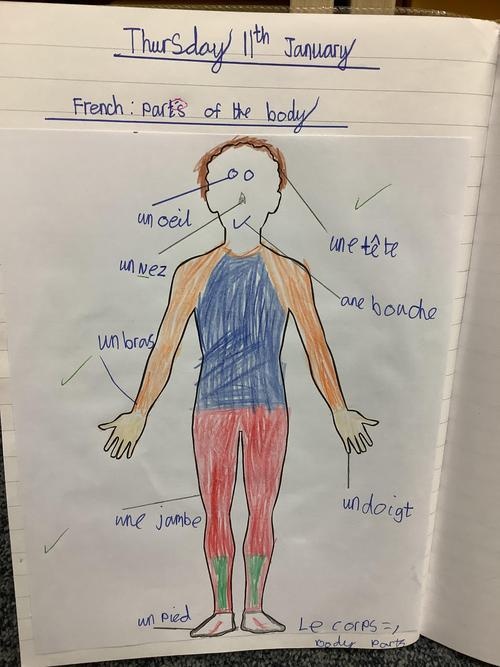 Thursday 11th January
French: parts of the body
un oeil
une tête
un nez
ane bouche
un bras
un doigt
une jambe
un pied
Le corps =,
body parts